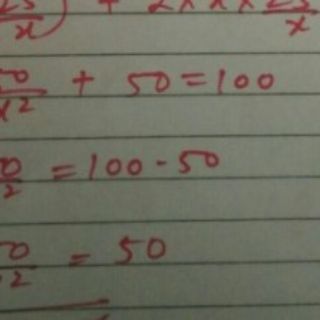 25/x) + 2 × x × 25/x
50/x² + 50 = 100
50/x² = 100 - 50
50/x² = 50